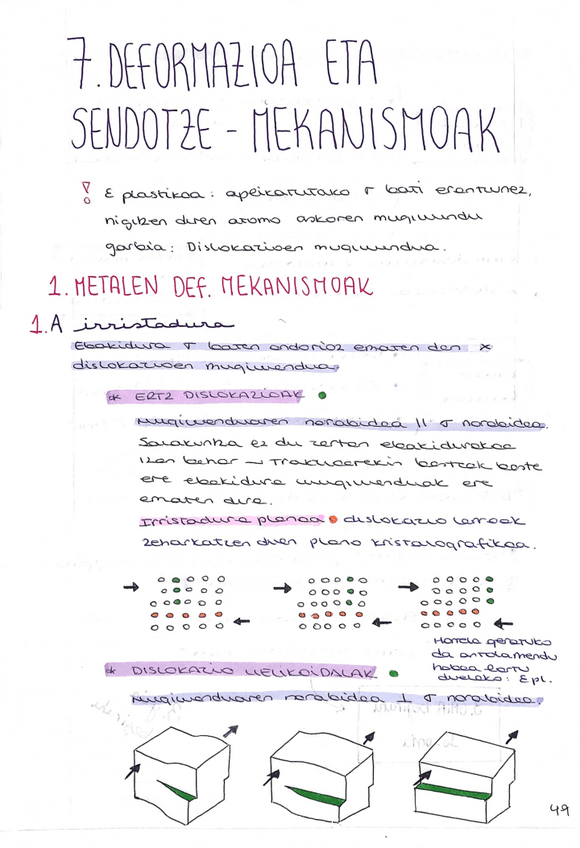 7. DEFORMAZIOA ETA
SENDOTZE - MEKANISMOAK
! Ɛ plastikoa: aplikatutako σ bati erantzunez,
higitzen diren atomo askoren mugimendu
garbia: Dislokazioen mugimendua.
1. METALEN DEF. MEKANISMOAK
1.A irristadura
Ebakidura σ baten ondorioz ematen den *
dislokazioen mugimendua
* ERTZ DISLOKAZIOAK
Mugimenduaren norabidea || σ norabidea.
Sarakunka ez du zertan ebakidurakoa
izan behar → Trakzioarekin besteak beste
ere ebakidura mugimenduak ere
ematen dira.
Irristadura planoa dislokazio lerroak
zeharkatzen duen plano kristalografikoa.
Horrela geratuko
da antolamendu
hobea lortu
duelako: Ɛ pl.
* DISLOKAZIO HELIKOIDALAK
Mugimenduaren norabidea ⊥ σ norabidea.
49